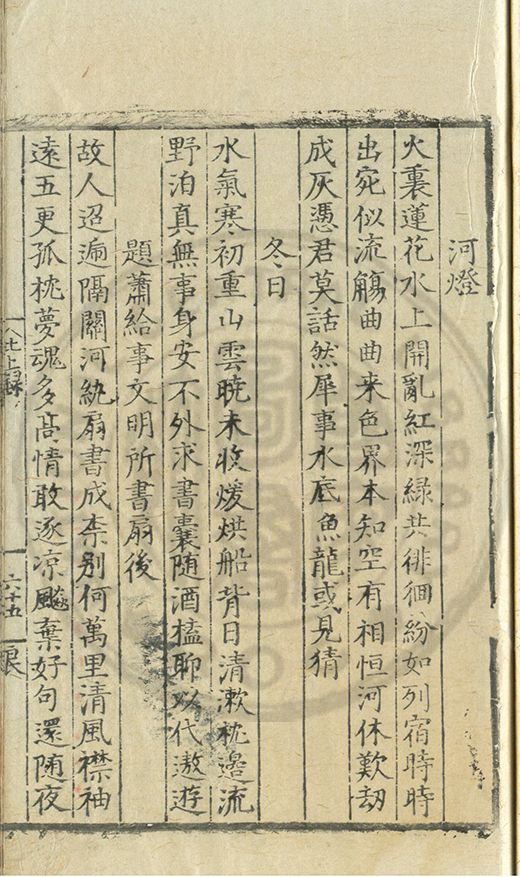 河燈
火裏蓮花水上開亂紅深綠共徘徊紛如列宿時時
出宛似流觴曲曲来色界本知空有相恒河休歎劫
成灰憑君莫話然犀事水底魚龍或見猜
冬日
水氣寒初重山雲曉未收煖烘船背日清漱枕邊流
野泊真無事身安不外求書囊随酒榼聊以代遨遊
題蕭給事文明所書扇後
故人迢遞隔關河紈扇書成柰别何萬里清風襟袖
遠五更孤枕夢魂多髙情敢逐凉飈棄好句還随夜
北上録 六十五